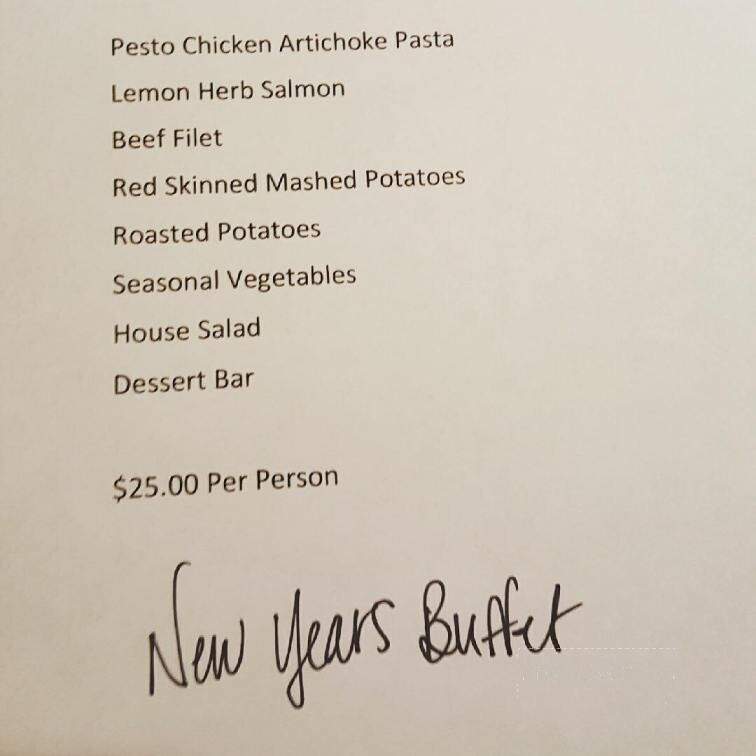 Pesto Chicken Artichoke Pasta
Lemon Herb Salmon
Beef Filet
Red Skinned Mashed Potatoes
Roasted Potatoes
Seasonal Vegetables
House Salad
Dessert Bar
$25.00 Per Person
New Years Buffet